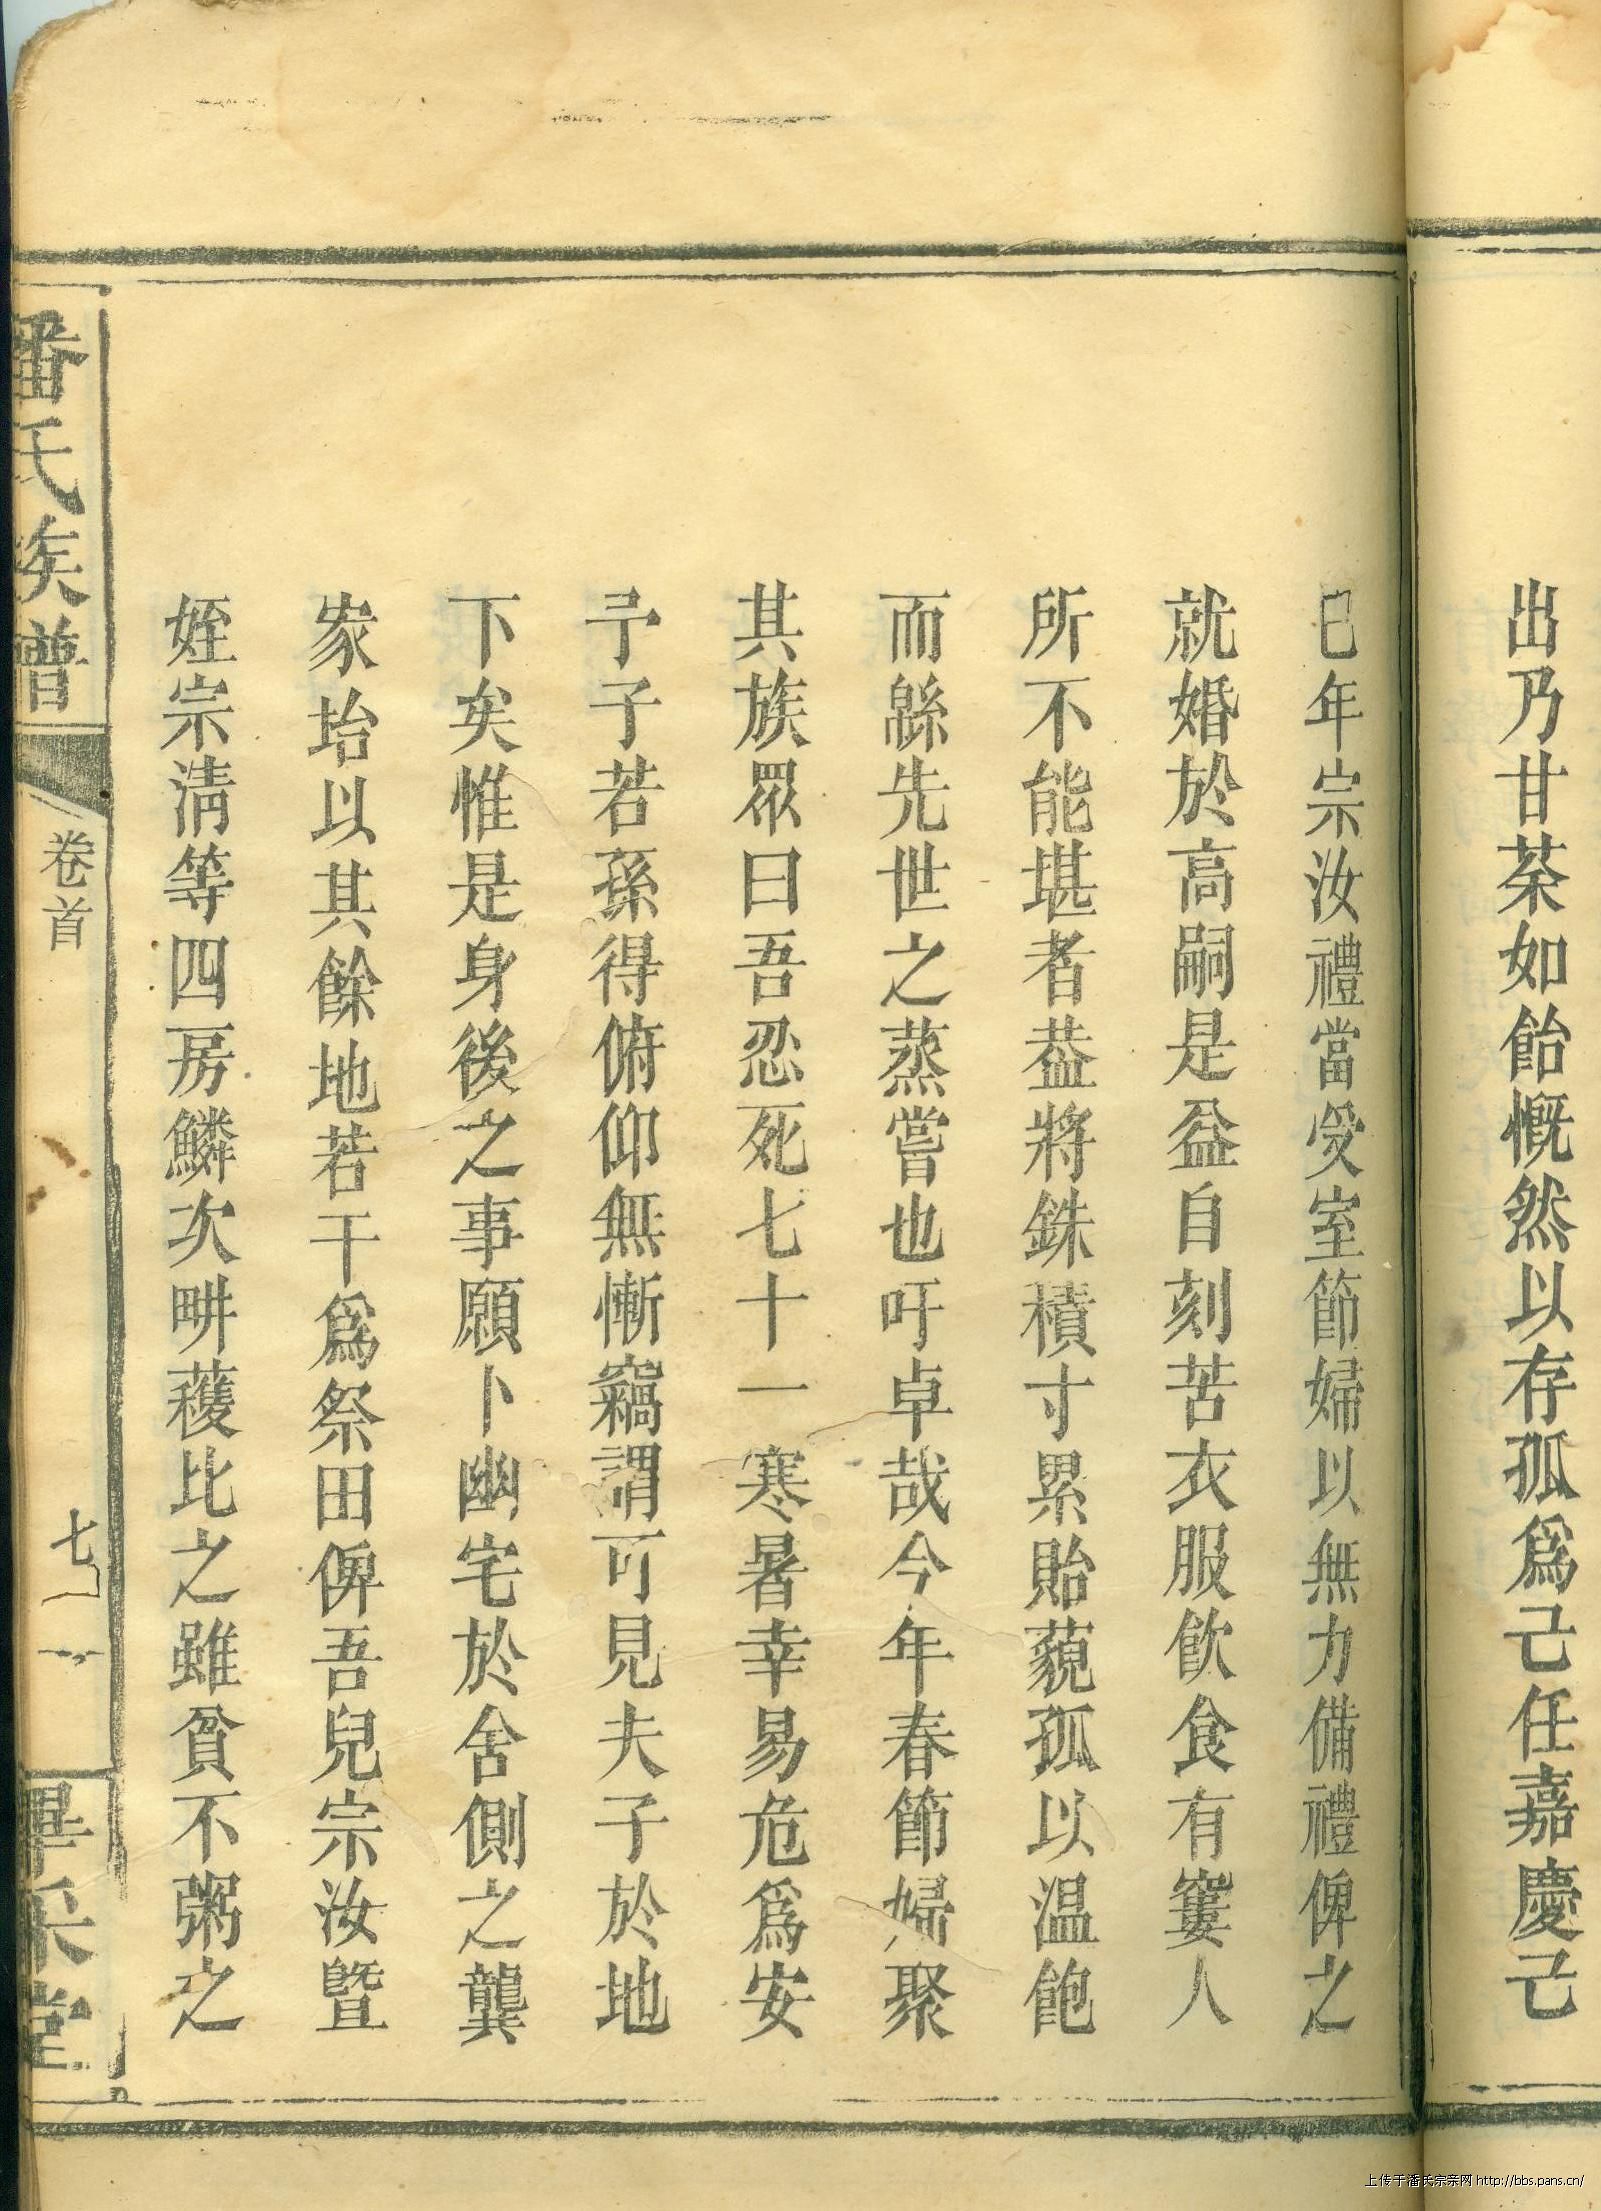 出乃甘荼如飴慨然以存孤爲己任嘉慶己
巳年宗汝禮當受室節婦以無力備禮俾之
就婚於高嗣是益自刻苦衣服飲食有窶人
所不能堪者葢將銖積寸累貽藐孤以温飽
而緜先世之蒸嘗也吁卓哉今年春節婦聚
其族眾曰吾忍死七十一寒暑幸易危爲安
予子若孫得俯仰無慚竊謂可見夫子於地
下矣惟是身後之事願卜幽宅於舍側之龔
家坮以其餘地若干爲祭田俾吾兒宗汝暨
姪宗淸等四房鱗次畊穫比之雖貧不粥之
潘氏族譜
卷首
七一
畢采堂
上传于潘氏宗亲网 http://bbs.pans.cn/